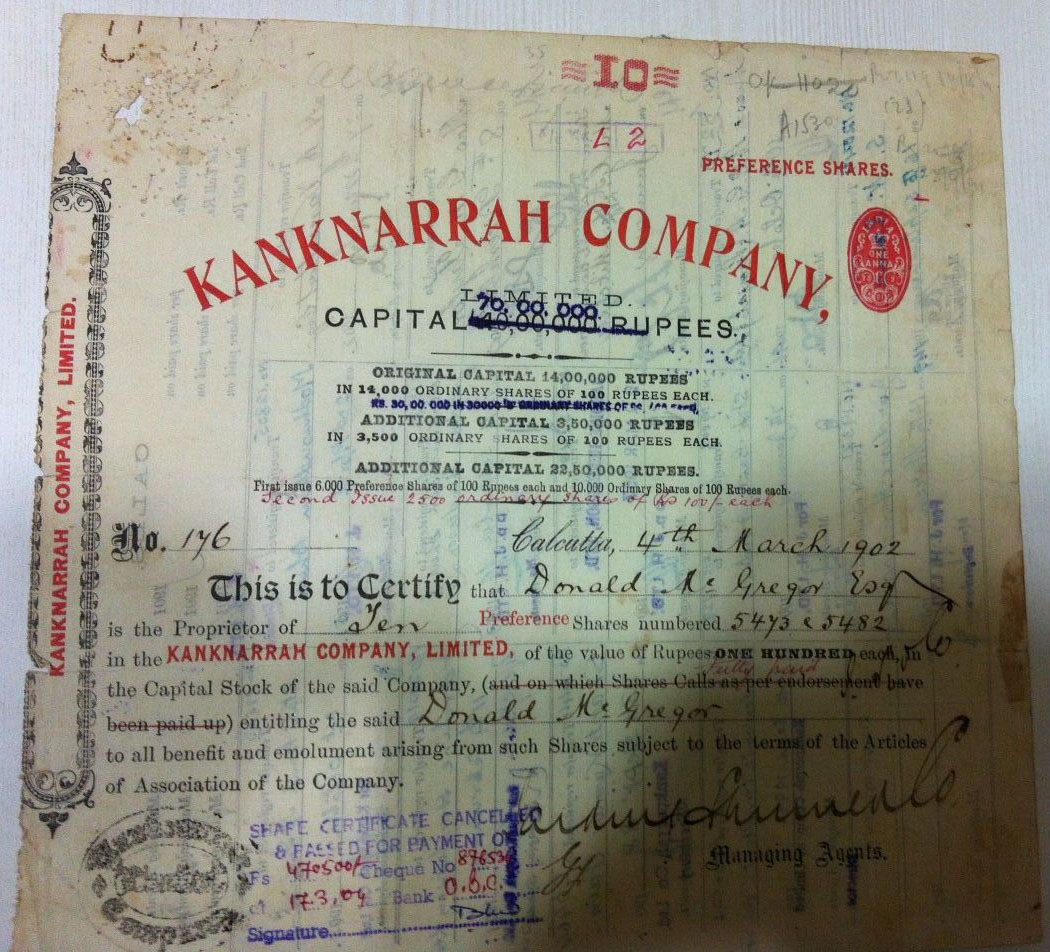 10
L 2
A1530
PREFERENCE SHARES.
KANKNARRAH COMPANY,
INDIA
ONE
ANNA
LIMITED.
70,00,000
CAPITAL 40,00,000 RUPEES.
ORIGINAL CAPITAL 14,00,000 RUPEES
IN 14,000 ORDINARY SHARES OF 100 RUPEES EACH.
RS. 30,00,000 IN 30000 ORDINARY SHARES OF RS. 100 EACH,
ADDITIONAL CAPITAL 3,50,000 RUPEES
IN 3,500 ORDINARY SHARES OF 100 RUPEES EACH.
ADDITIONAL CAPITAL 22,50,000 RUPEES.
First issue 6,000 Preference Shares of 100 Rupees each and 10,000 Ordinary Shares of 100 Rupees each.
Second Issue 2500 ordinary shares of Rs 100/- each
No. 176 Calcutta, 4th March 1902
This is to Certify that Donald Mc Gregor Esq
is the Proprietor of Ten Preference Shares numbered 5473 @ 5482
in the KANKNARRAH COMPANY, LIMITED, of the value of Rupees ONE HUNDRED each, in
fully paid
the Capital Stock of the said Company, (and on which Shares Calls as per endorsement have
been paid up) entitling the said Donald Mc Gregor
to all benefit and emolument arising from such Shares subject to the terms of the Articles
of Association of the Company.
Managing Agents.
SHARE CERTIFICATE CANCELLED
& PASSED FOR PAYMENT OF
Rs 470500/- Cheque No 876536
of 17.3.09 Bank O.B.C.
Signature
KANKNARRAH COMPANY, LIMITED.